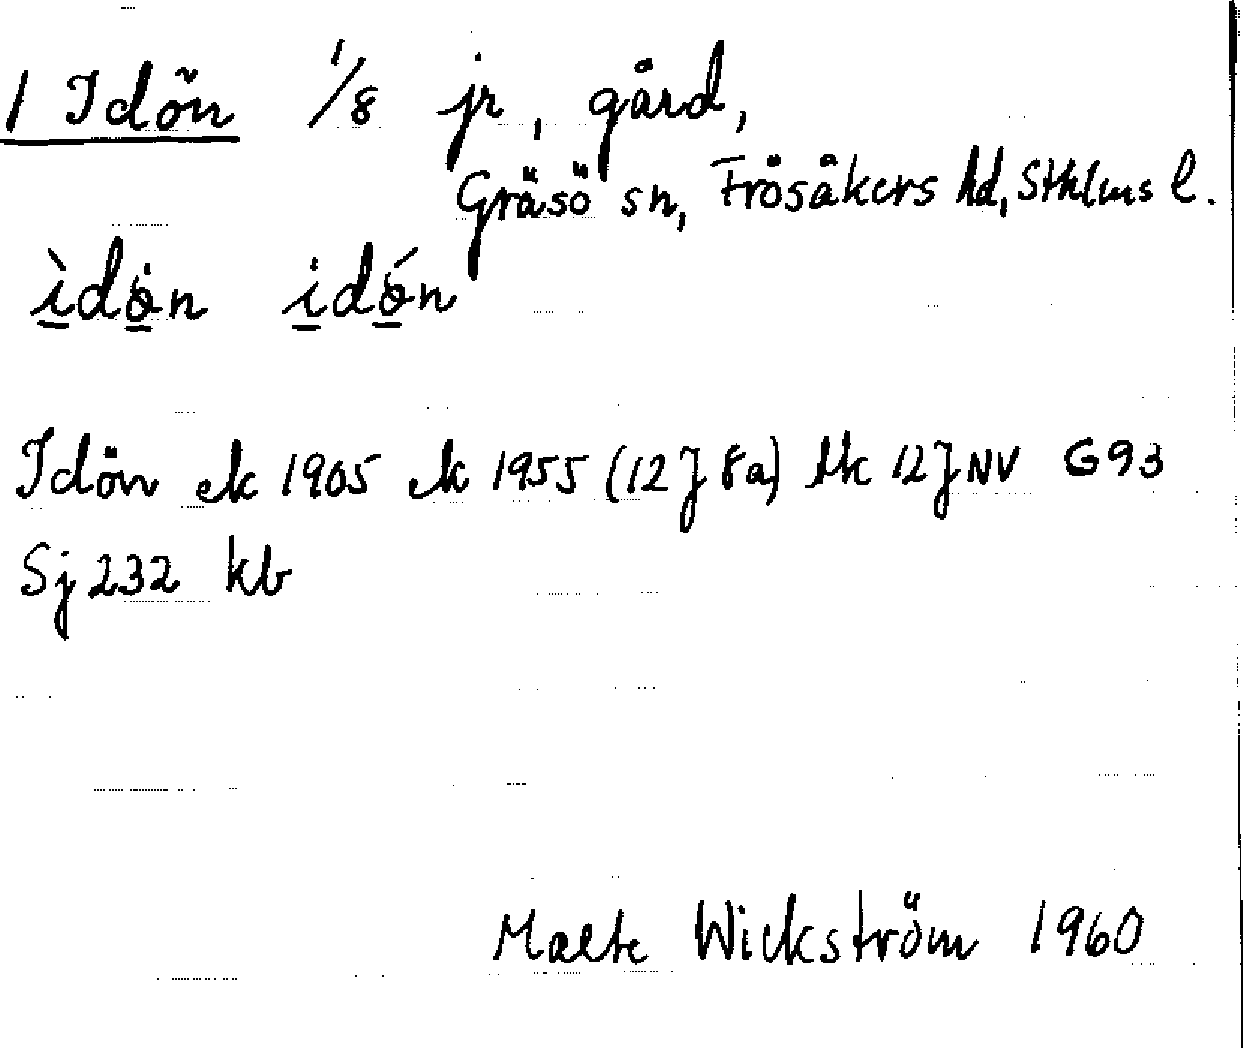 1 Idön 1/8 jr, gård,
Gräsö sn, Frösåkers hd, Sthlms l.
ìdön idǿn
Idön ek 1905 ek 1955 (12 J 8a) tk 12 J NV G93
Sj 232 kb
Malte Wickström 1960